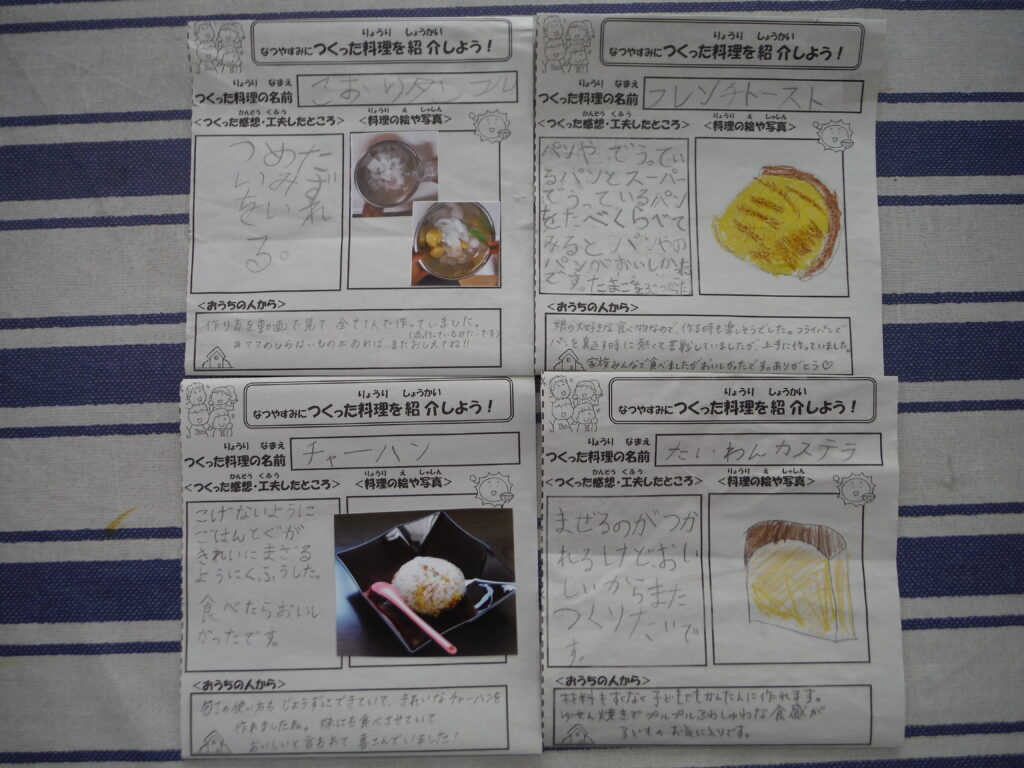 りょうり しょうかい
なつやすみにつくった料理を紹介しよう！
りょうり なまえ
つくった料理の名前
こおりタンフル
かんそう くふう
<つくった感想・工夫したところ>
りょうり え しゃしん
<料理の絵や写真>
つめた
いみず
をいれ
る。
<おうちの人から>
作り方を動画で見て 全て1人で作っていました。
(流行っているみたいです)
ママのしらないものがあれば、またおしえてね!!
りょうり しょうかい
なつやすみにつくった料理を紹介しよう！
りょうり なまえ
つくった料理の名前
フレンチトースト
かんそう くふう
<つくった感想・工夫したところ>
りょうり え しゃしん
<料理の絵や写真>
パンやでうってい
るパンとスーパー
でうっているパン
をたべくらべて
みると、パンやの
パンがおいしかった
です。たまごを2こつかった
<おうちの人から>
娘の大好きな食べ物なので、作る時も楽しそうでした。フライパンで
パンを裏返す時に熱くて苦戦していましたが、上手に作っていました。
家族みんなで食べましたがおいしかったです。ありがとう♡
りょうり しょうかい
なつやすみにつくった料理を紹介しよう！
りょうり なまえ
つくった料理の名前
チャーハン
かんそう くふう
<つくった感想・工夫したところ>
りょうり え しゃしん
<料理の絵や写真>
こげないように
ごはんとぐが
きれいにまざる
ようにくふうした。
食べたらおいし
かったです。
<おうちの人から>
包丁の使い方もじょうずにできていて、きれいなチャーハンを
作れましたね。妹にも食べさせていて
おいしいと言われて喜んでいました！
りょうり しょうかい
なつやすみにつくった料理を紹介しよう！
りょうり なまえ
つくった料理の名前
たいわんカステラ
かんそう くふう
<つくった感想・工夫したところ>
りょうり え しゃしん
<料理の絵や写真>
まぜるのがつか
れるけど、おい
しいからまた
つくりたいで
す。
<おうちの人から>
材料もすくなく子どもでもかんたんに作れます。
ゆせん焼きでプルプルふわしゅわな食感が
子どものお気に入りです。